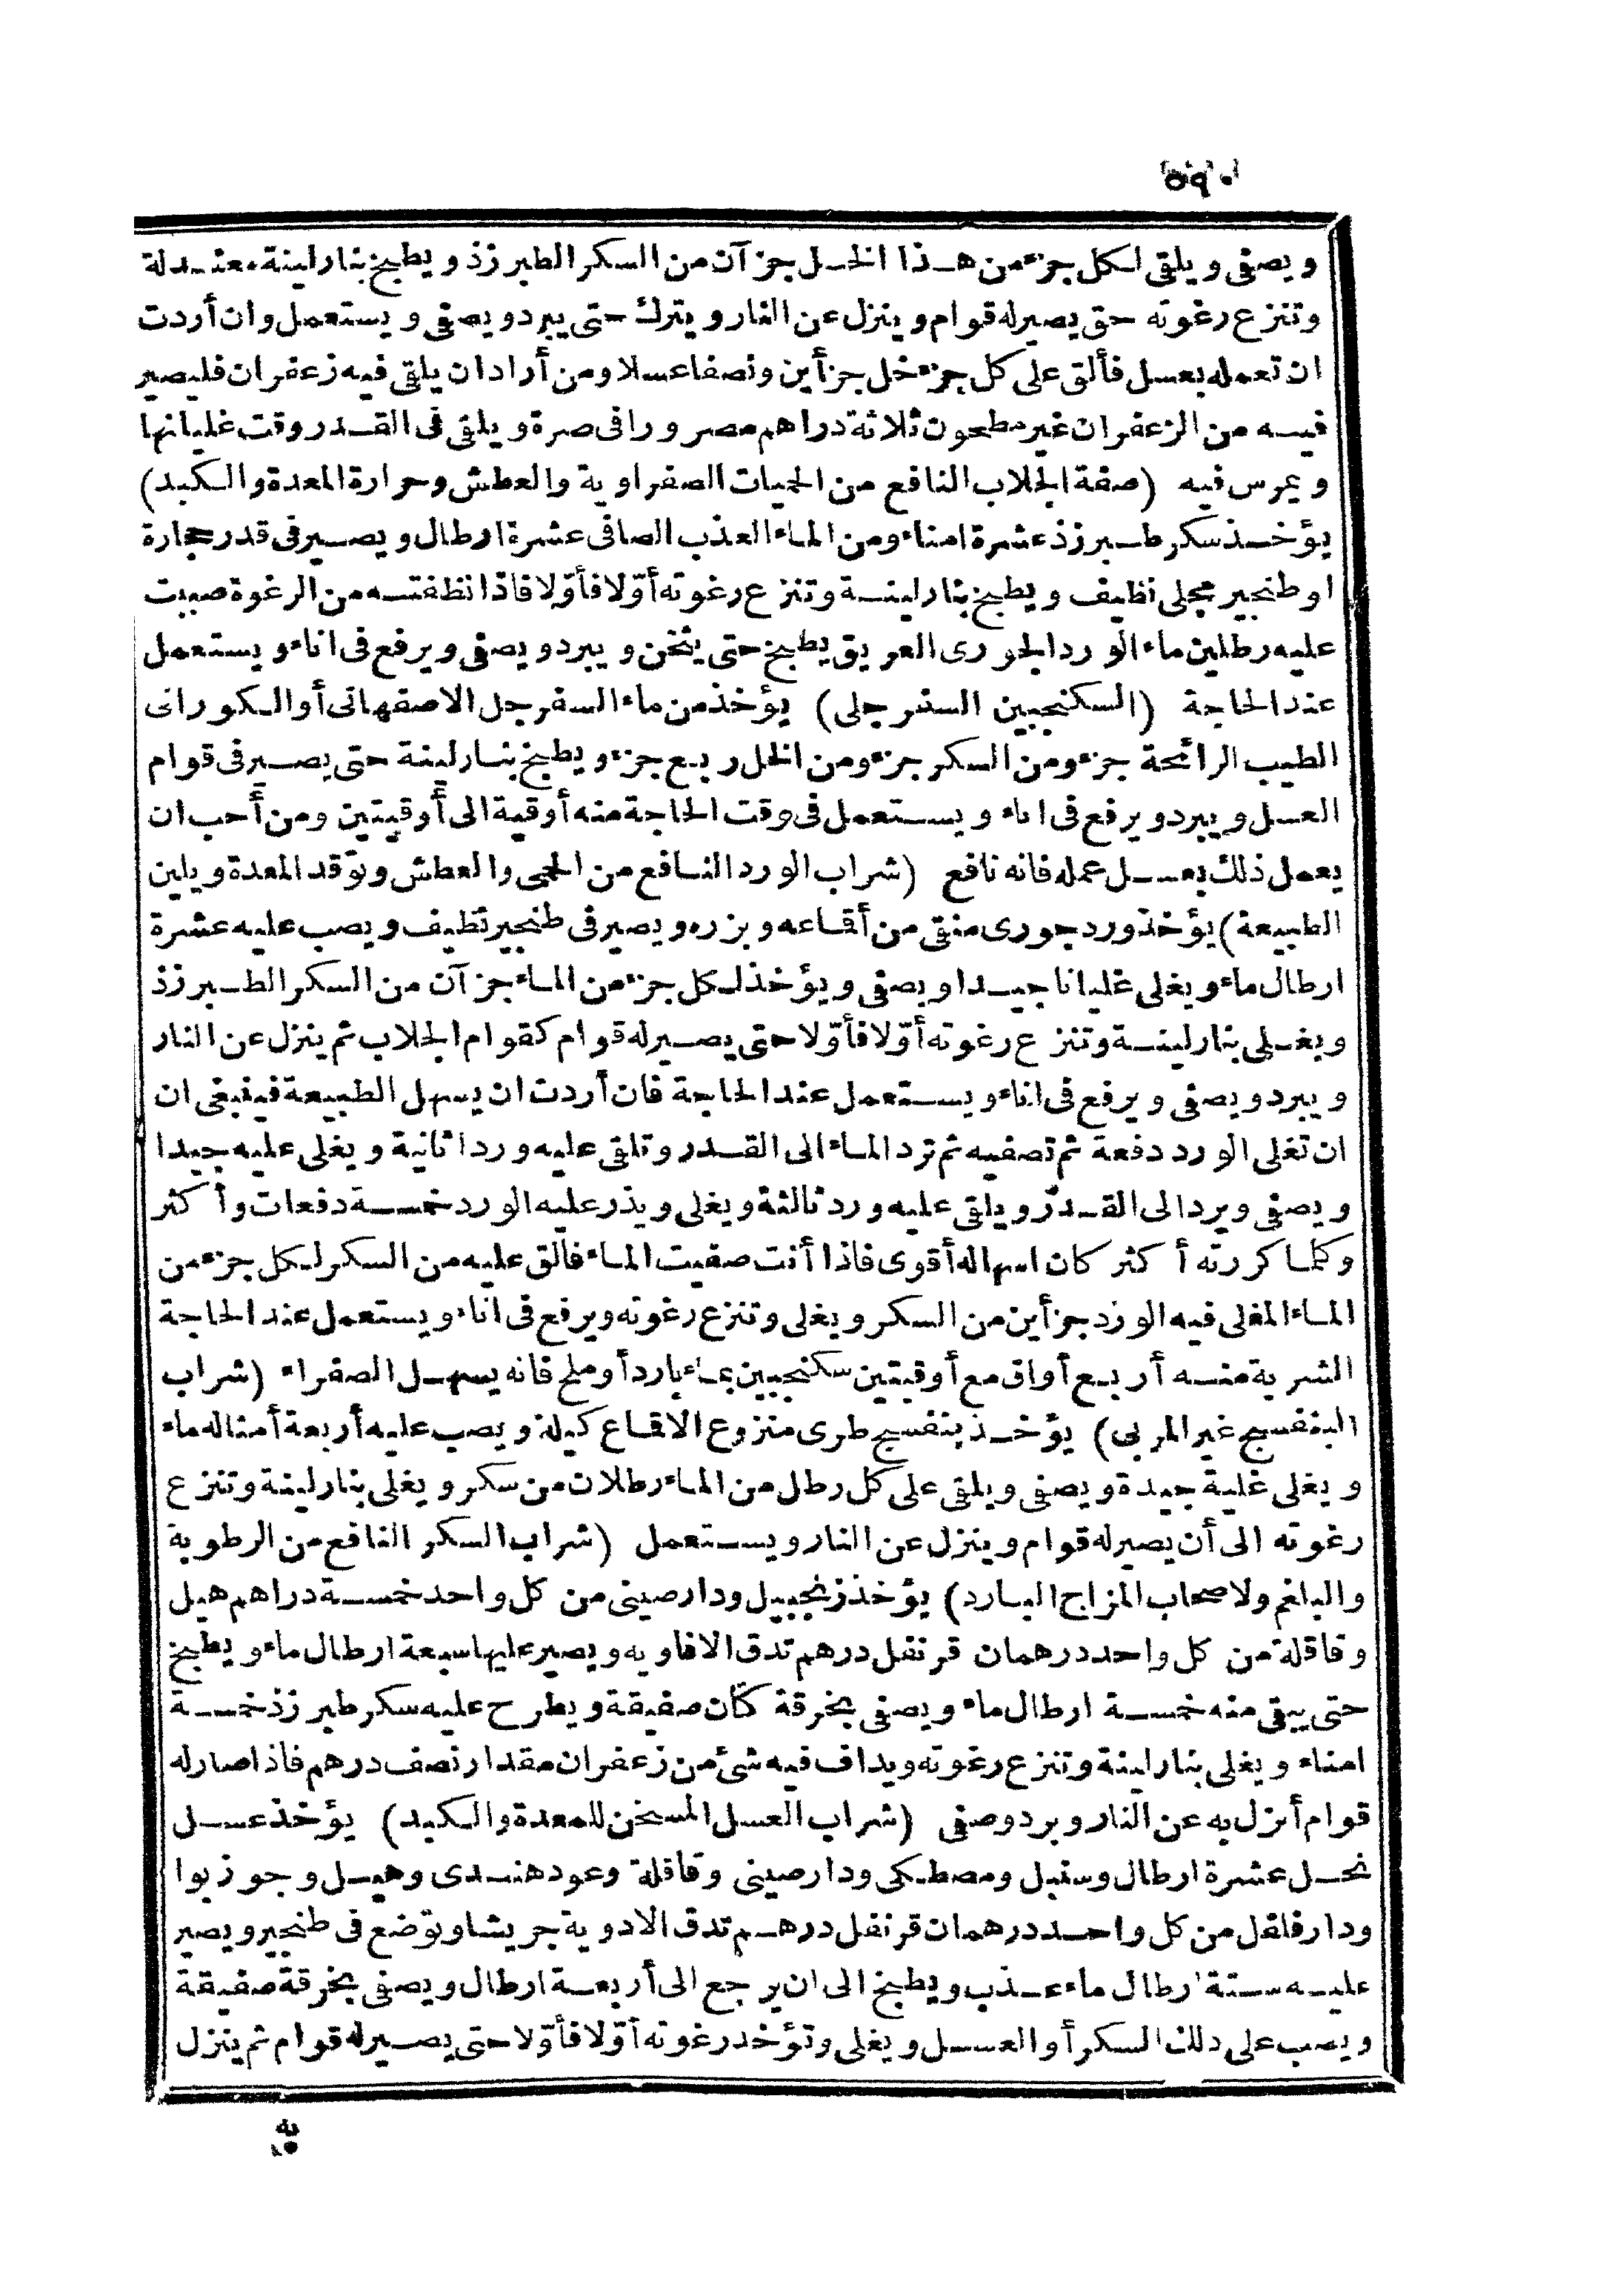 ٥٩٠
ويصفى ويلقى لكل جزء من هذا الخل جزآن من السكر الطبرزذ ويطبخ بنار لينة معتدلة
وتنزع رغوته حتى يصير له قوام وينزل عن النار ويترك حتى يبرد ويصفى ويستعمل وان أردت
ان تعمله بعسل فألق على كل جزء خل جزأين ونصفا عسلا ومن أراد ان يلقى فيه زعفران فليصير
فيه من الزعفران غير مطحون ثلاثة دراهم مصرورا فى صرة ويلقى فى القدر وقت غليانها
ويمرس فيه (صفة الجلاب النافع من الحميات الصفراوية والعطش وحرارة المعدة والكبد)
يؤخذ سكر طبرزذ عشرة امناء ومن الماء العذب الصافى عشرة ارطال ويصير فى قدر حجارة
او طنجير مجلى نظيف ويطبخ بنار لينة وتنزع رغوته أوّلا فأوّلا فاذا نظفته من الرغوة صببت
عليه رطلين ماء الورد الجورى العريق يطبخ حتى يثخن ويبرد ويصفى ويرفع فى اناء ويستعمل
عند الحاجة (السكنجبين السفرجلى) يؤخذ من ماء السفرجل الاصفهانى أو الكورانى
الطيب الرائحة جزء ومن السكر جزء ومن الخل ربع جزء ويطبخ بنار لينة حتى يصير فى قوام
العسل ويبرد ويرفع فى اناء ويستعمل فى وقت الحاجة منه أوقية الى أوقيتين ومن أحب ان
يعمل ذلك بعسل عمله فانه نافع (شراب الورد النافع من الحمى والعطش وتوقد المعدة ويلين
الطبيعة) يؤخذ ورد جورى منقى من أقاعه وبزره ويصير فى طنجير نظيف ويصب عليه عشرة
ارطال ماء ويغلى غليانا جيدا ويصفى ويؤخذ لكل جزء من الماء جزآن من السكر الطبرزذ
ويغلى بنار لينة وتنزع رغوته أوّلا فأوّلا حتى يصير له قوام كقوام الجلاب ثم ينزل عن النار
ويبرد ويصفى ويرفع فى اناء ويستعمل عند الحاجة فان أردت ان يسهل الطبيعة فينبغى ان
ان تغلى الورد دفعة ثم تصفيه ثم ترد الماء الى القدر وتلقى عليه وردا ثانية ويغلى عليه جيدا
ويصفى ويرد الى القدر ويلقى عليه ورد ثالثة ويغلى ويذر عليه الورد خمسة دفعات وأكثر
وكلما كررته أكثر كان اسهاله أقوى فاذا أنت صفيت الماء فألق عليه من السكر لكل جزء من
الماء المغلى فيه الورد جزأين من السكر ويغلى وتنزع رغوته ويرفع فى اناء ويستعمل عند الحاجة
الشربة منه أربع أواق مع أوقيتين سكنجبين بماء بارد أو ملح فانه يسهل الصفراء (شراب
البنفسج غير المربى) يؤخذ بنفسج طرى منزوع الاقاع كيلة ويصب عليه أربعة أمثاله ماء
ويغلى غلية جيدة ويصفى ويلقى على كل رطل من الماء رطلان من سكر ويغلى بنار لينة وتنزع
رغوته الى أن يصير له قوام وينزل عن النار ويستعمل (شراب السكر النافع من الرطوبة
والبلغم ولاصحاب المزاج البارد) يؤخذ زنجبيل ودارصينى من كل واحد خمسة دراهم هيل
وقاقلة من كل واحد درهمان قرنفل درهم تدق الافاويه ويصير عليها سبعة ارطال ماء ويطبخ
حتى يبقى منه خمسة ارطال ماء ويصفى بخرقة كتّان صفيقة ويطرح عليه سكر طبرزذ خمسة
امناء ويغلى بنار لينة وتنزع رغوته ويداف فيه شئ من زعفران مقدار نصف درهم فاذا صار له
قوام أنزل به عن النار وبرد وصفى (شراب العسل المسخن للمعدة والكبد) يؤخذ عسل
نحل عشرة ارطال وسنبل ومصطكى ودارصينى وقاقلة وعود هندى وهيل وجوزبوا
ودارفلفل من كل واحد درهمان قرنفل درهم تدق الادوية جريشا وتوضع فى طنجير ويصير
عليه ستة ارطال ماء عذب ويطبخ الى ان يرجع الى أربعة ارطال ويصفى بخرقة صفيقة
ويصب على ذلك السكر أو العسل ويغلى وتؤخذ رغوته أوّلا فأوّلا حتى يصير له قوام ثم ينزل
به